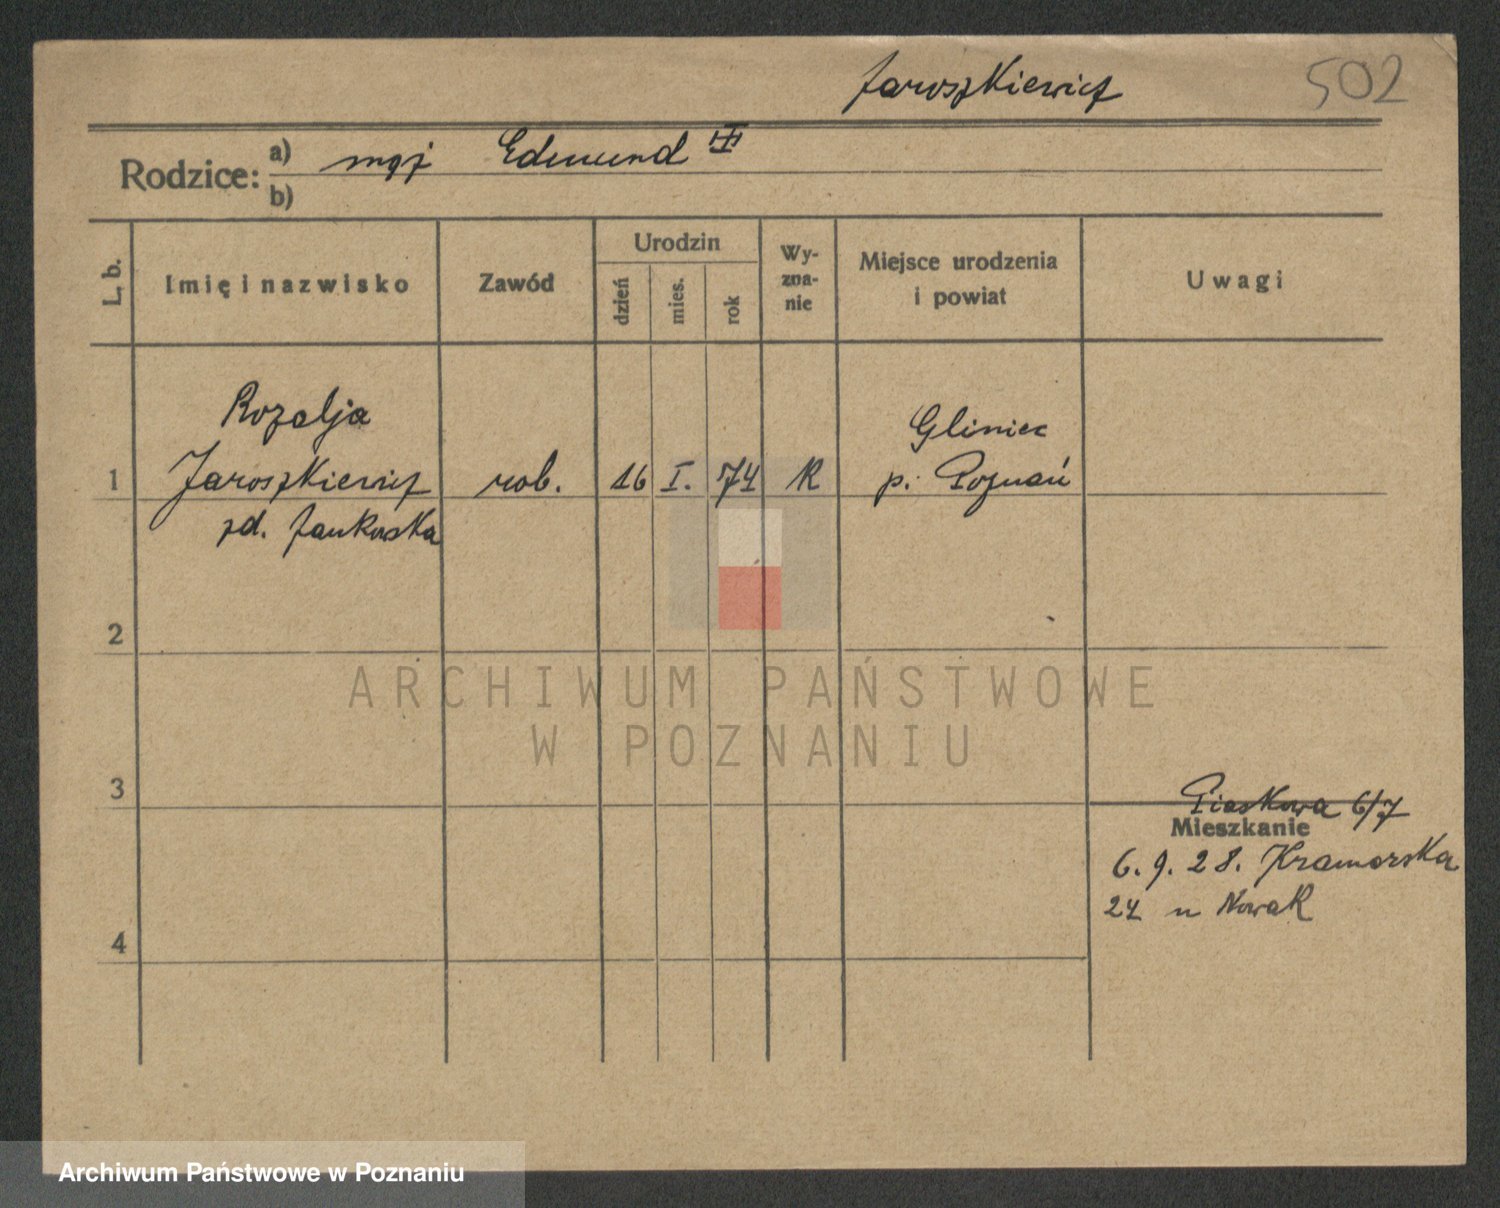 Jaroszkiewicz 502
Rodzice: a) mąż Edmund III
b)
L. b. Imię i nazwisko Zawód Urodzin dzień mies. rok Wyznanie Miejsce urodzenia i powiat Uwagi
Rozalja
Jaroszkiewicz
zd. Jankowska
1 rob. 16 I. 74 R
Gliniec
p. Poznań
2
ARCHIWUM PAŃSTWOWE
W POZNANIU
3
Piaskowa 6/7
Mieszkanie
6. 9. 28. Kramarska
24 u Nowak
4
Archiwum Państwowe w Poznaniu